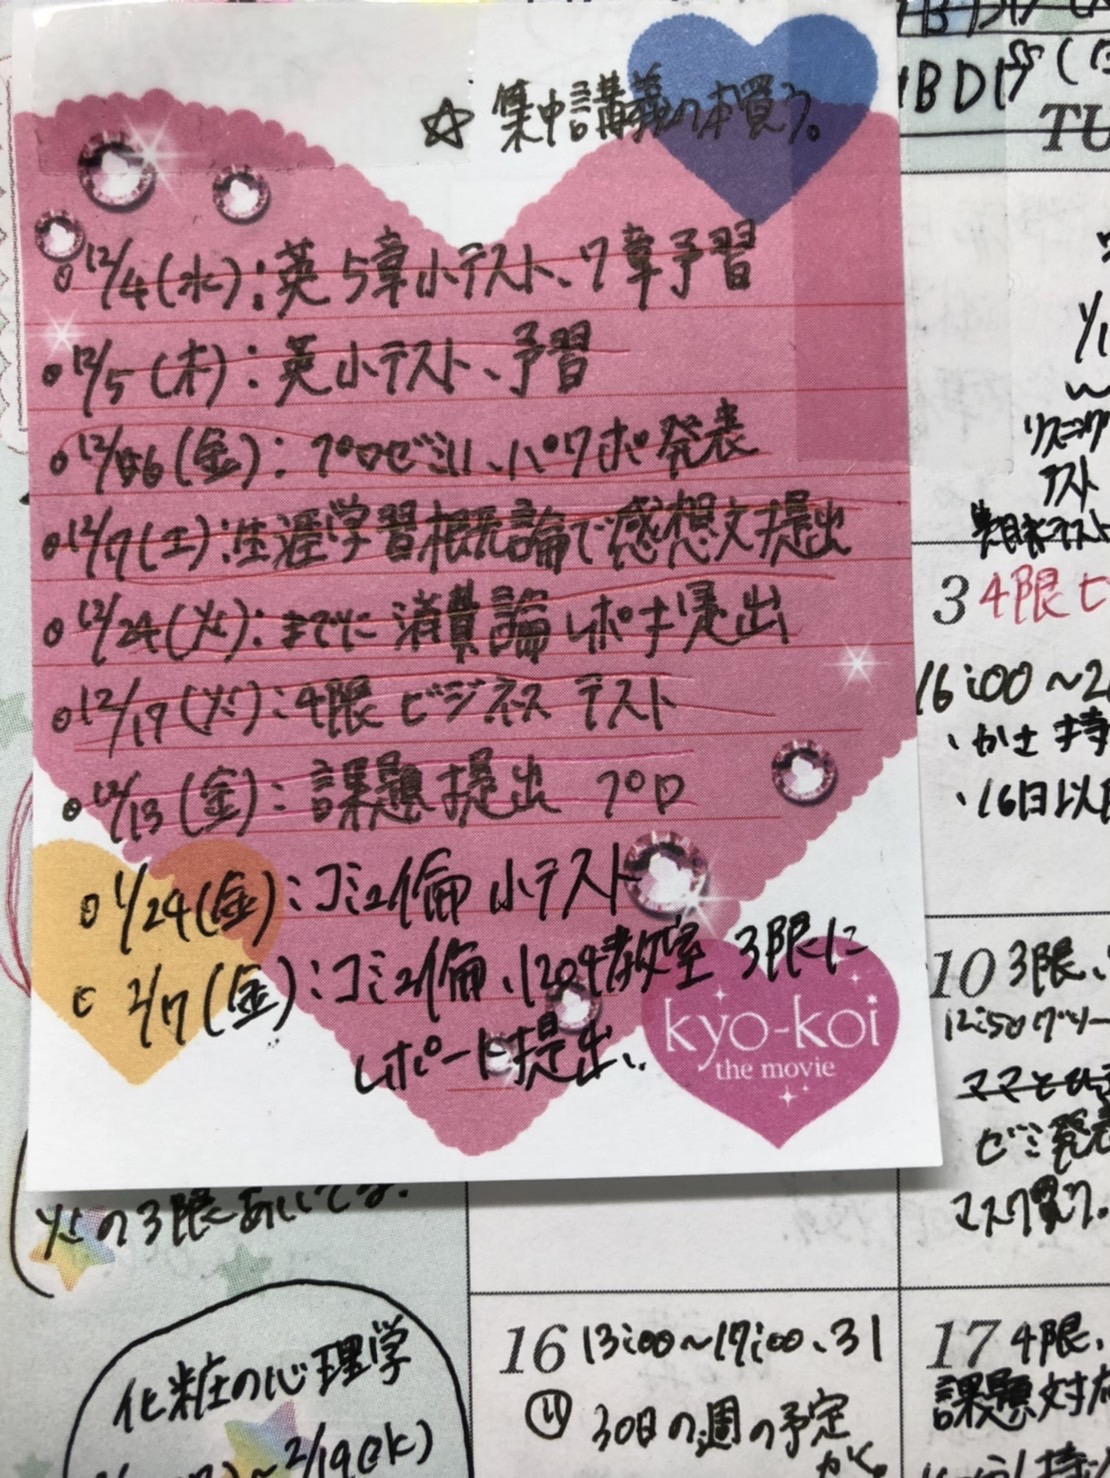 ☆ 集中講義の本買う。
12/4(水):英 5章小テスト、7章予習
12/5(木):英 小テスト、予習
12/6(金):プロゼミII、パワポ発表
12/7(土):生涯学習概論で感想文提出
12/24(火):までに消費論レポート提出
12/17(火):4限 ビジネス テスト
12/13(金):課題提出 プロ
1/24(金):コミュ倫 小テスト
2/7(金):コミュ倫、1204教室 3限に
レポート提出、
kyo-koi
the movie
BD
TU
リスニング
テスト
期末テスト
3 4限 ビ
16:00~2
、かさ 持
、16日以
10 3限、
12:50 グソー
ママと
ゼミ発表
マスク買う。
火の3限あいてる。
化粧の心理学
~2/19(水)
16 13:00~17:00、31
30日の週の予定
かく。
17 4限、
課題対